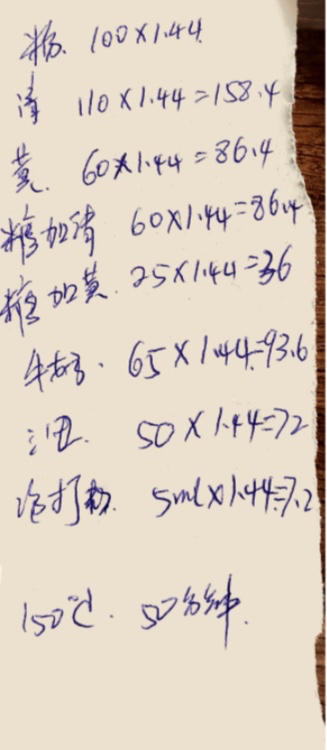 粉. 100×1.44
清 110×1.44=158.4
黄. 60×1.44=86.4
糖加清 60×1.44=86.4
糖加黄. 25×1.44=36
牛奶. 65×1.44=93.6
油. 50×1.44=72
泡打粉. 5ml×1.44=7.2
150℃. 50分钟.